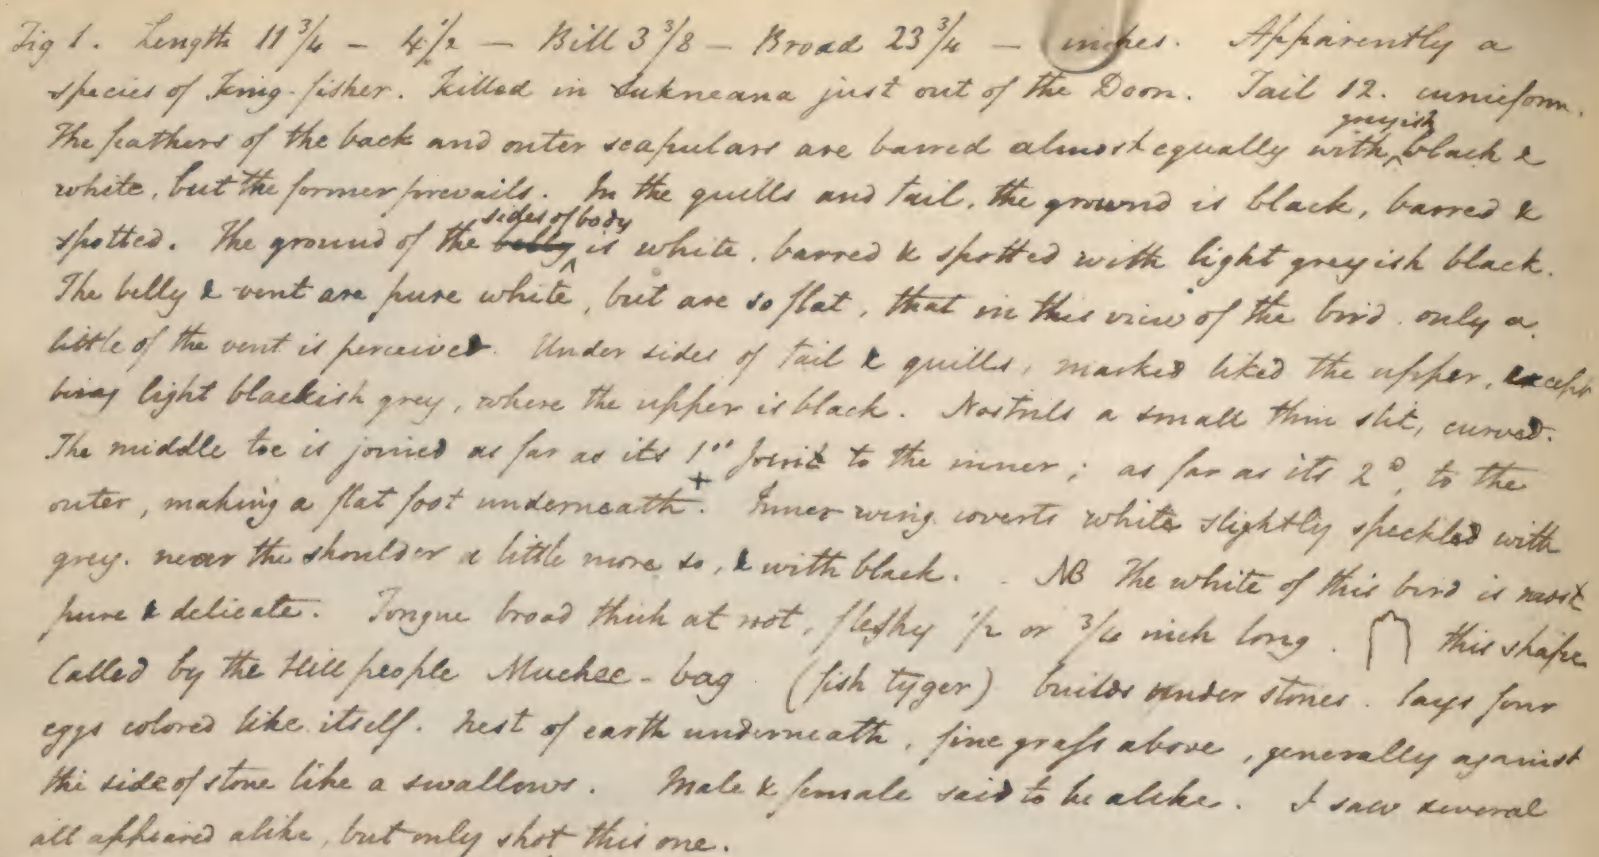 Fig 1. Length 11 3/4 – 4 1/2 – Bill 3 3/8 – Broad 23 3/4 – inches. Apparently a
species of King-fisher. Killed in Sukneana just out of the Doon. Tail 12. cunieform.
The feathers of the back and outer scapulars are barred almost equally with greyish black &
white, but the former prevails. In the quills and tail, the ground is black, barred &
spotted. The ground of the belly sides of body is white, barred & spotted with light greyish black.
The belly & vent are pure white, but are so flat, that in this view of the bird only a
little of the vent is perceived. Under sides of tail & quills, marked liked the upper, except
being light blackish grey, where the upper is black. Nostrils a small thin slit, curved.
The middle toe is joined as far as its 1st joint to the inner; as far as its 2d, to the
outer, making a flat foot underneath +. Inner wing coverts white slightly speckled with
grey. near the shoulder a little more so, & with black. NB The white of this bird is most
pure & delicate. Tongue broad thick at root, fleshy 1/2 or 3/4 inch long. this shape
Called by the Hill people Muchee-bag (fish tyger) builds under stones. lays four
eggs colored like itself. Nest of earth underneath, fine grass above, generally against
the side of stone like a swallows. Male & female said to be alike. I saw several
all appeared alike, but only shot this one.